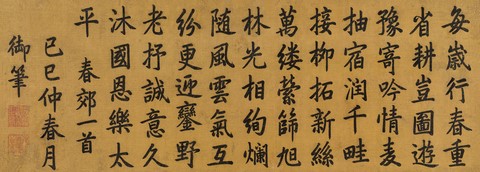 每歲行春重
省耕豈圖遊
豫寄吟情麦
抽宿润千畦
接柳拓新絲
萬缕縈篩旭
林光相絢爛
隨風雲氣互
紛更迎鑾野
老抒誠意久
沐國恩樂太
平 春郊一首
己巳仲春月
御筆